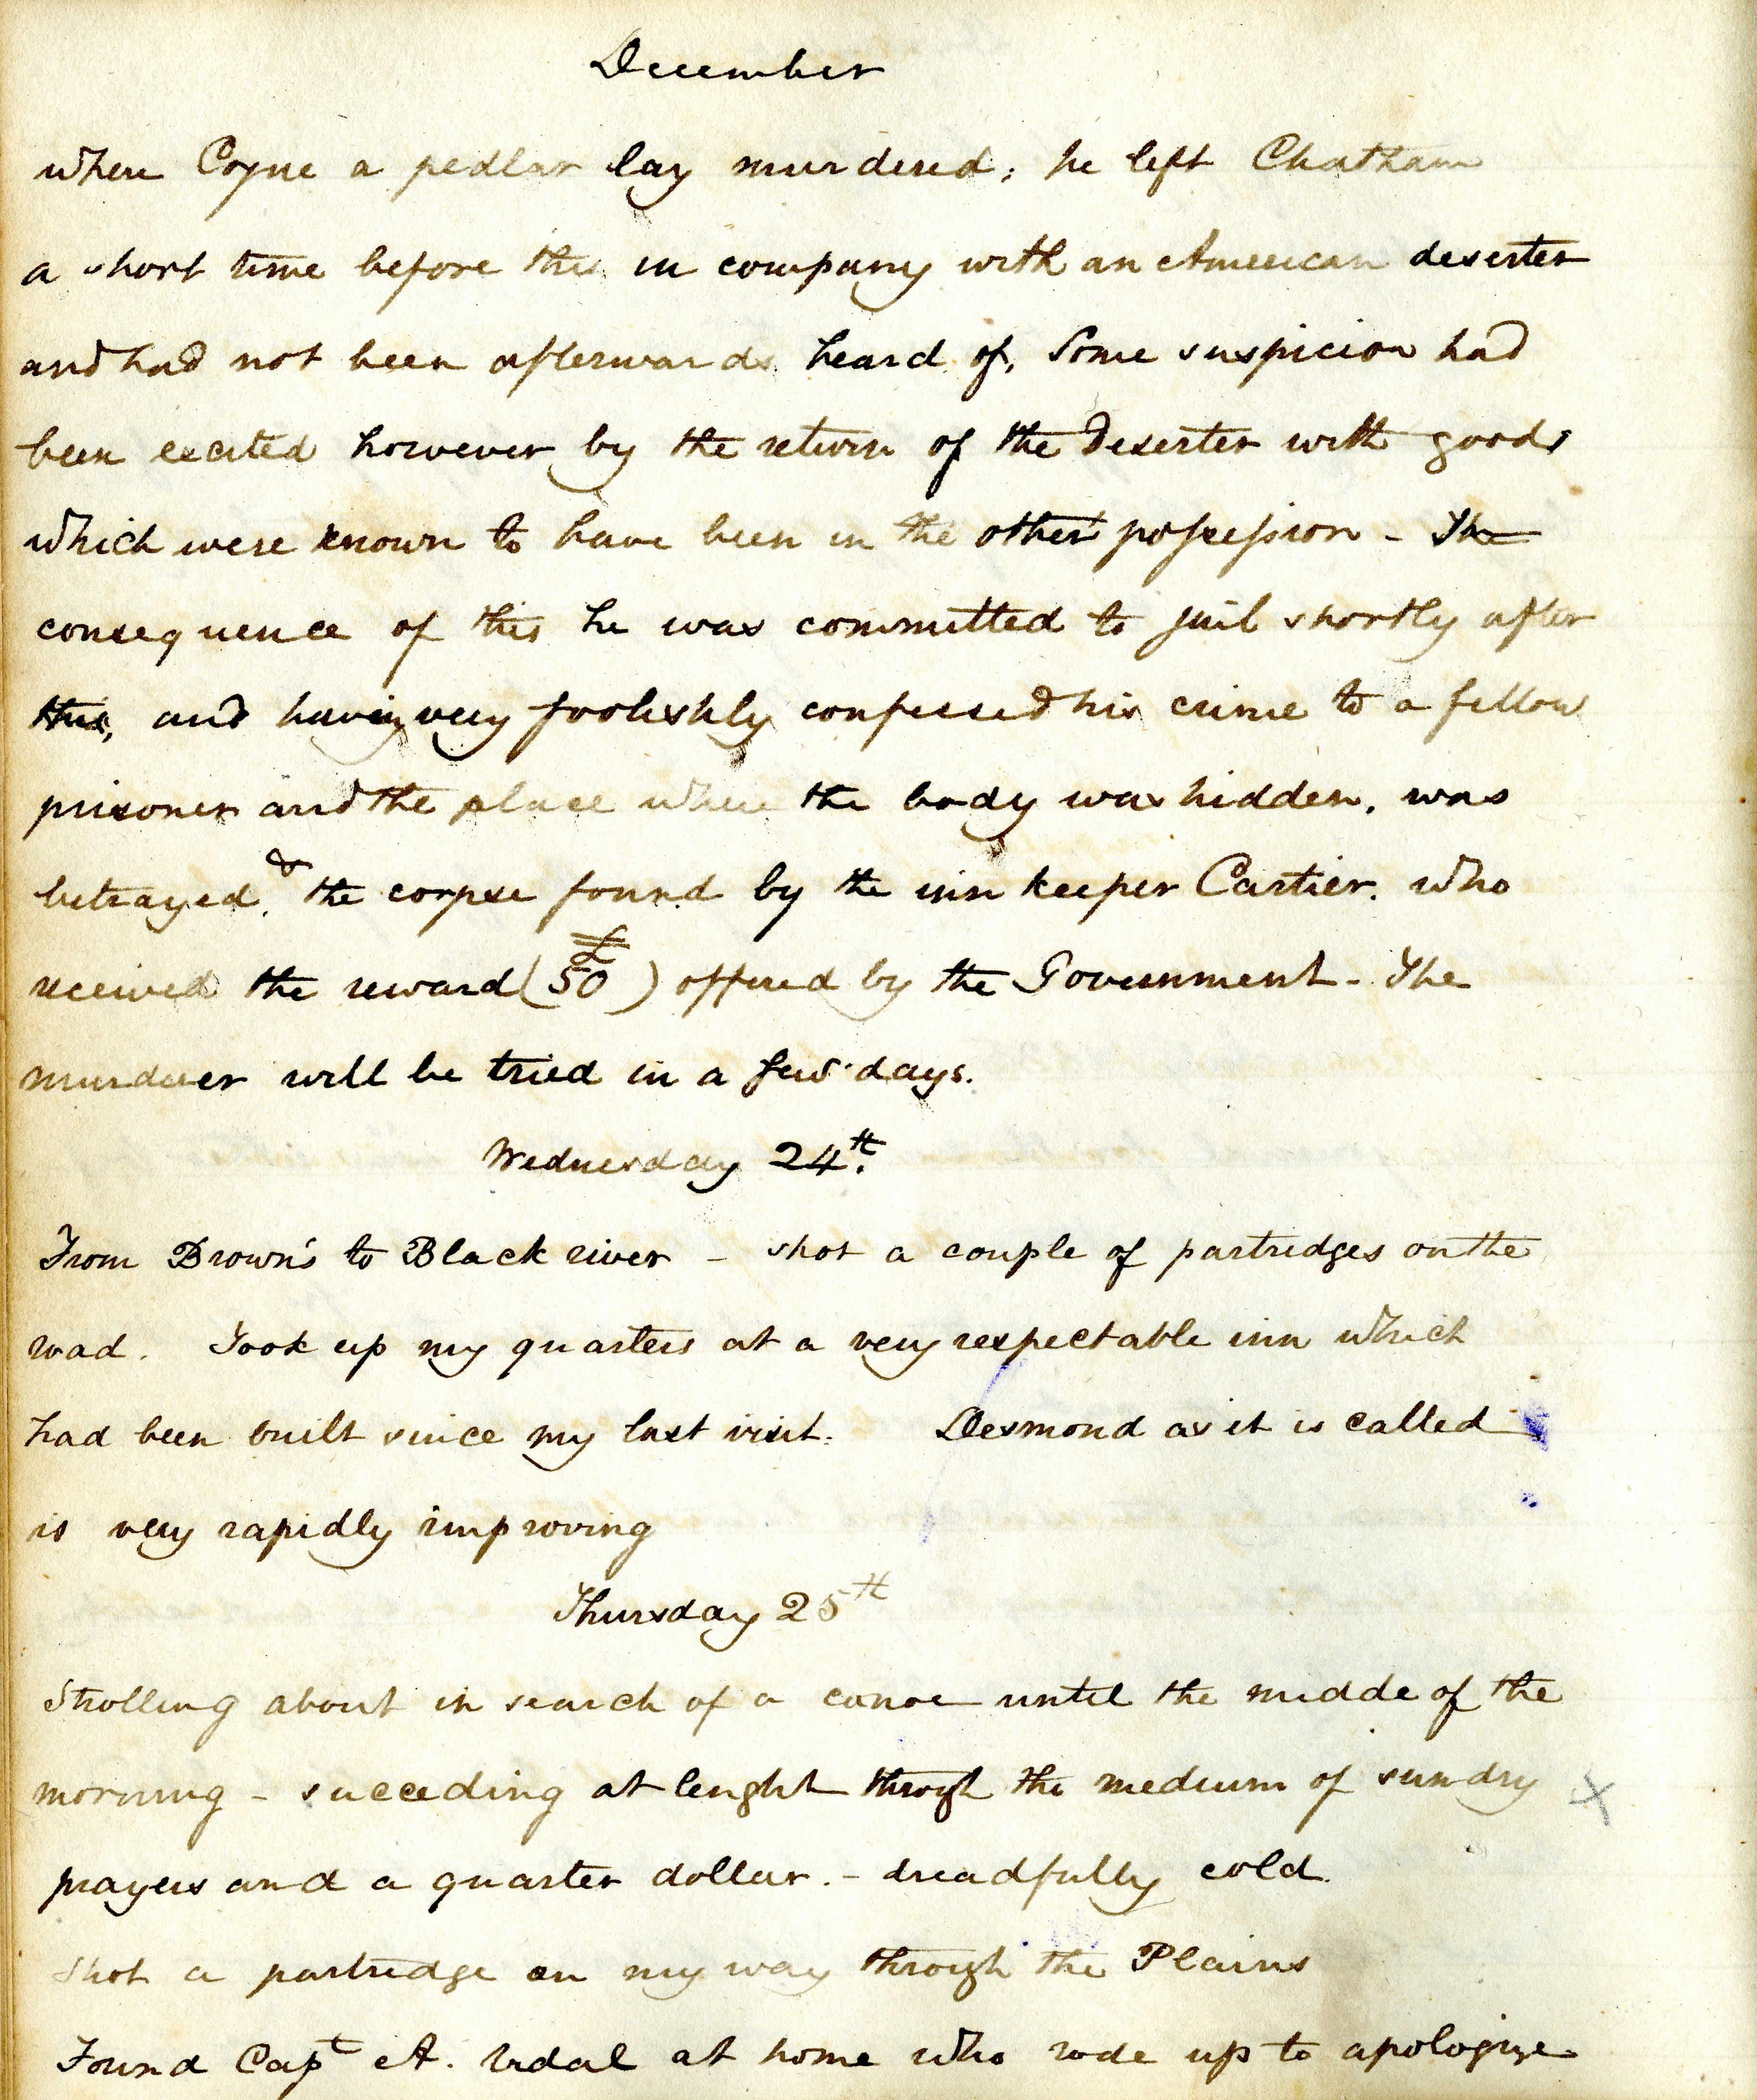 December
where Coyne a pedlar lay murdered; he left Chatham
a short time before this in company with an American deserter
and had not been afterwards heard of. Some suspicion had
been excited however by the return of the Deserter with goods
which were known to have been in the others possession - The
consequence of this he was committed to jail shortly after
this, and having very foolishly confessed his crime to a fellow
prisoner and the place where the body was hidden, was
betrayed, & the corpse found by the inn keeper Cartier. who
received the reward (£50) offered by the Government - The
murderer will be tried in a few days.
Wednesday 24th.
From Brown's to Black river - shot a couple of partridges on the
road. Took up my quarters at a very respectable inn which
had been built since my last visit. Desmond as it is called
is very rapidly improving
Thursday 25th
Strolling about in search of a canoe until the midde of the
morning - succeding at lenght throgh the medium of sundry
prayers and a quarter dollar. - dreadfully cold.
Shot a partridge on my way through the Plains
Found Capt A. Vidal at home who rode up to apologize